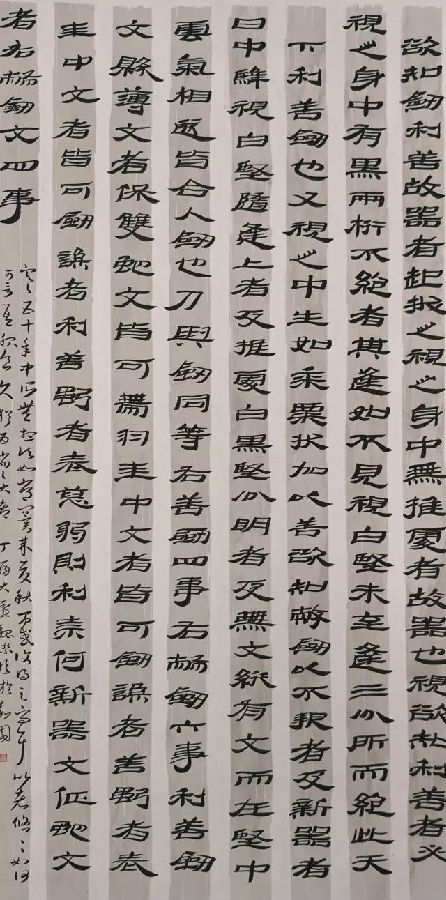 欲知劍利善故器者起拔之視之身中無推處者故器也視欲知利善者必
視之身中有黑兩桁不絕者其逢如不見視白堅未至逢三分所而絕此天
下利善劍也又視之中生如黍粟狀加以善欲知幣劍以不報者及新器者
日中騂視白堅隨逢上者及推處白黑堅分明者及無文縱有文而在堅中
雲氣相遂皆合人劍也刀與劍同等右善劍四事右幣劍六事利善劍
文縣薄文者保雙蛇文皆可帶羽圭中文者皆可劍謙者善彊者表
圭中文者皆可劍謙者利善彊者表恚弱則利奈何新器文佐蛇文
者右幣劍文四事